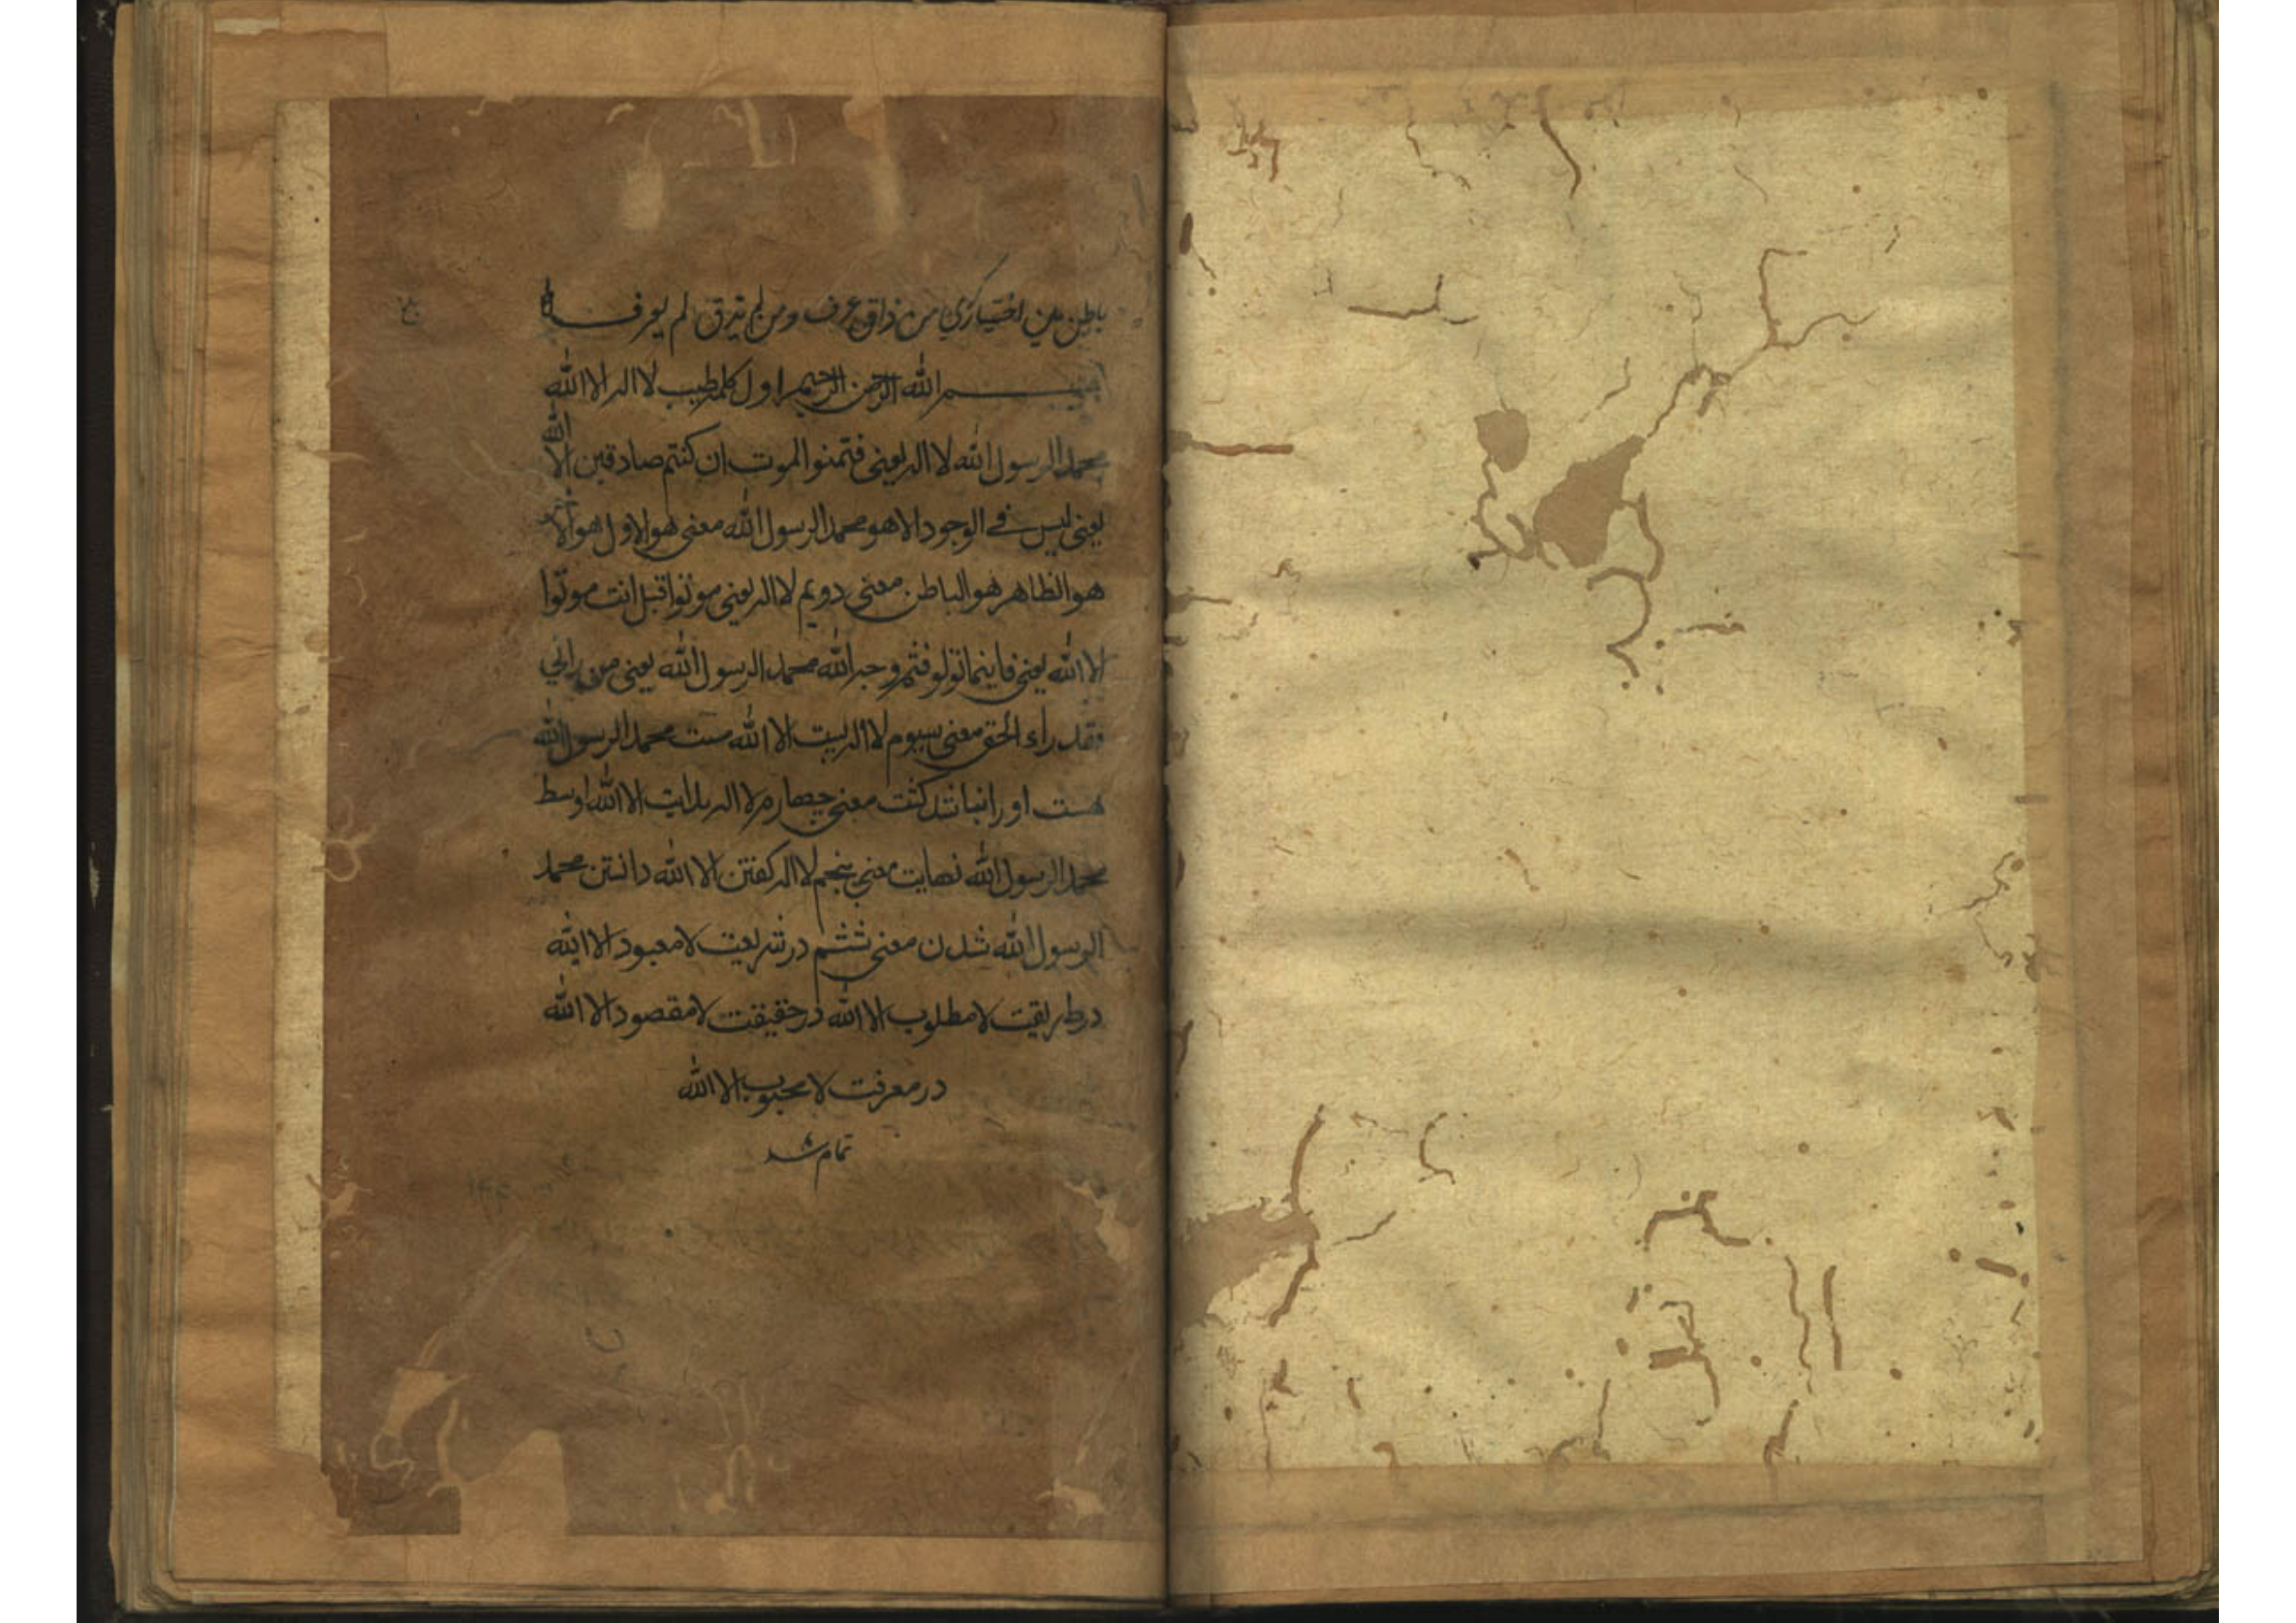 باطن مین اختیارکري من ذاق عرف ومن لم یذق لم یعرفه
بسم الله الرحمن الرحیم اول کلمه طیب لا اله الا الله
محمد الرسول الله لا اله یعنی فتمنوا الموت ان کنتم صادقین الا الله
یعنی لیس فے الوجود الا هو محمد الرسول الله معنی هو الاول هو الاخر
هو الظاهر هو الباطن معنی دویم لا اله یعنی موتوا قبل انت موتوا
الا الله یعنی فاینما تولو فثم وجه الله محمد الرسول الله یعنی من رانی
فقد راء الحق معنی سیوم لا اله نیست الا الله مست محمد الرسول الله
هست او را نباشد کثت معنی چهارم لا اله بدایت الا الله اوسط
محمد الرسول الله نهایت معنی پنجم لا اله کفتن الا الله دانستن محمد
الرسول الله شدن معنی ششم در شریعت لا معبود الا الله
در طریقت لا مطلوب الا الله در حقیقت لا مقصود الا الله
در معرفت لا محبوب الا الله
تمام شد